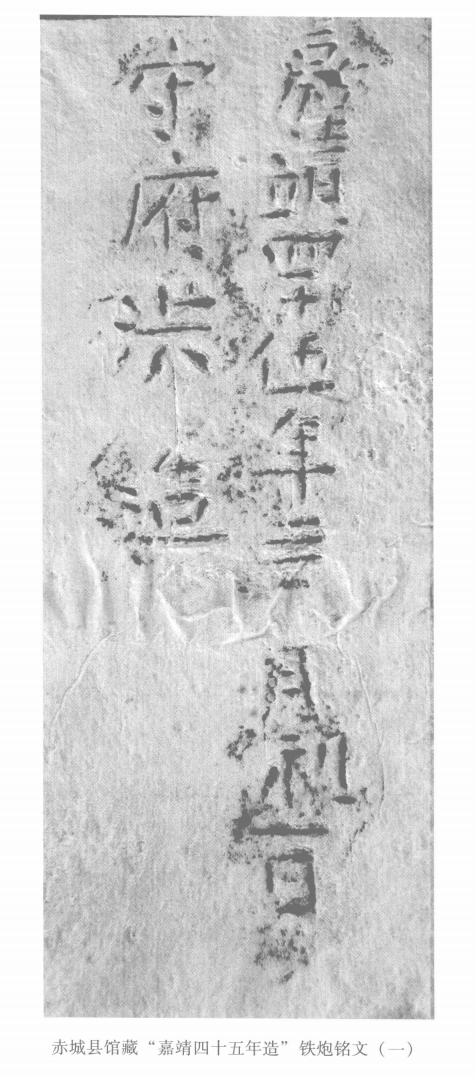 嘉靖四十伍年三月初一日
守府 造
赤城县馆藏“嘉靖四十五年造”铁炮铭文（一）